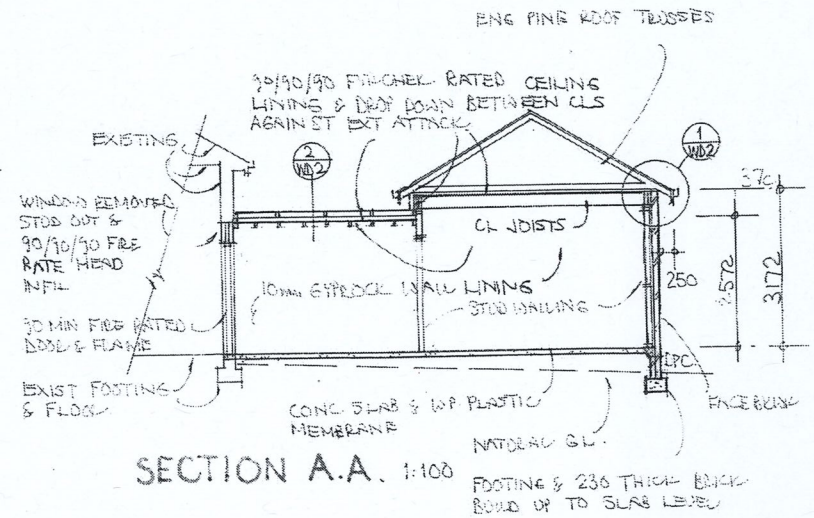 ENG PINE ROOF TRUSSES
90/90/90 FIRCHEK RATED CEILING
LINING & DROP DOWN BETWEEN CLS
AGAINST EXT ATTACK
EXISTING
2
WD2
1
WD2
37c
WINDOW REMOVED
STUD OUT &
90/90/90 FIRE
RATE HEAD
INFIL
CL JOISTS
10mm GYPROCK WALL LINING
STUD WALLING
250
2572
3172
90 MIN FIRE RATED
DOOR & FRAME
DPC
EXIST FOOTING
& FLOOR
CONC SLAB & WP PLASTIC
MEMBRANE
FACE BRICK
NATURAL GL.
SECTION A.A. 1:100
FOOTING & 230 THICK BRICK
BUILD UP TO SLAB LEVEL